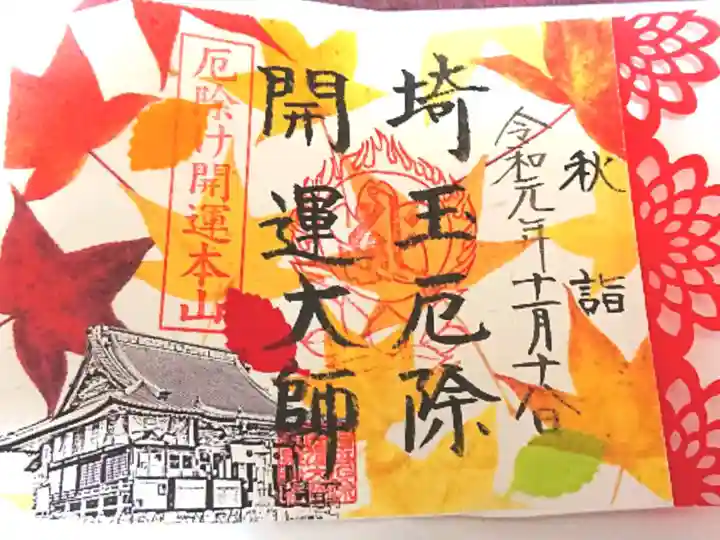 秋詣
令和元年十一月十六日
埼玉厄除
開運大師
厄除け開運本山